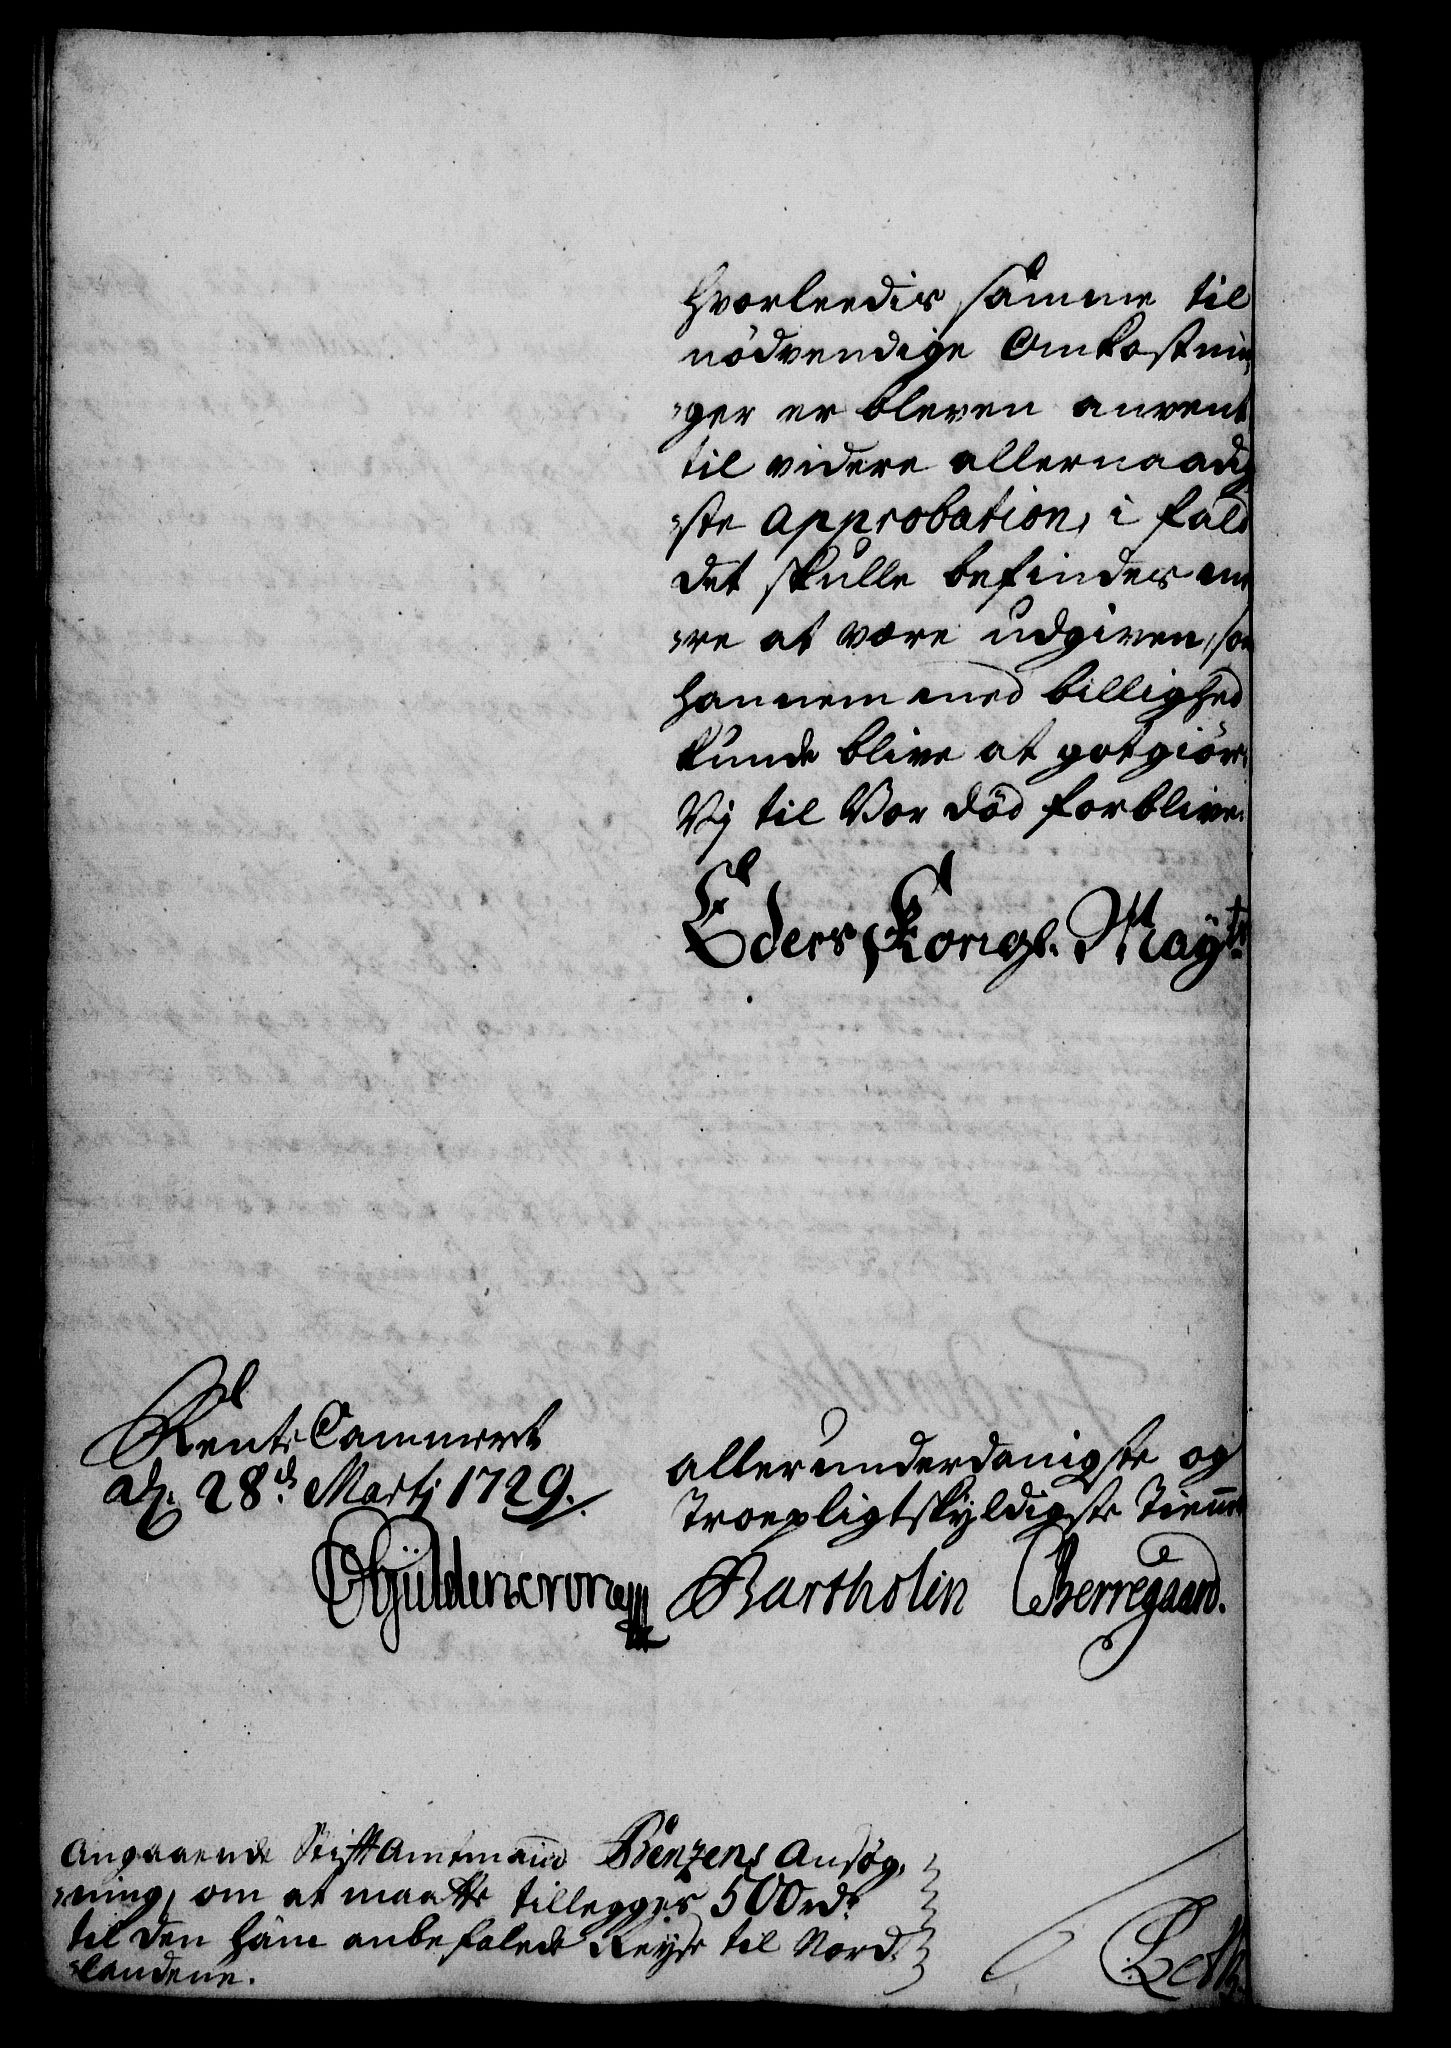 hvorleedis samme til
nödvendige Omkostnin
-ger er bleven anvent
til videre allernaadig
-ste approbation, i fald
det skulle befindes me
-re at være udgiven, som
hannem med billighed
kunde blive at gotgiöre.
Vj til Vor död forblive.
Eders Kongl. Mayts
Rente Cammeret
d. 28d. Martj 1729.
allerunderdanigste og
Troepligtskyldigste Tienere
Gyldencrone
Bartholin Berregaard.
Angaaende Stiftamtmand Benzens Ansög-
-ning, om at maatte tillegges 500 rdr
til den ham anbefalede Reyse til Nord-
-landene.